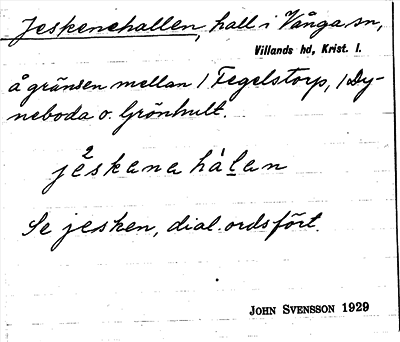 Jeskenehallen, hall i Vånga sn,
Villands hd, Krist. l.
å gränsen mellan / Fegelstorp, / Dy-
neboda o. Grönhult.
jèskena hàlan
Se jesken, dial. ordsfört.
JOHN SVENSSON 1929